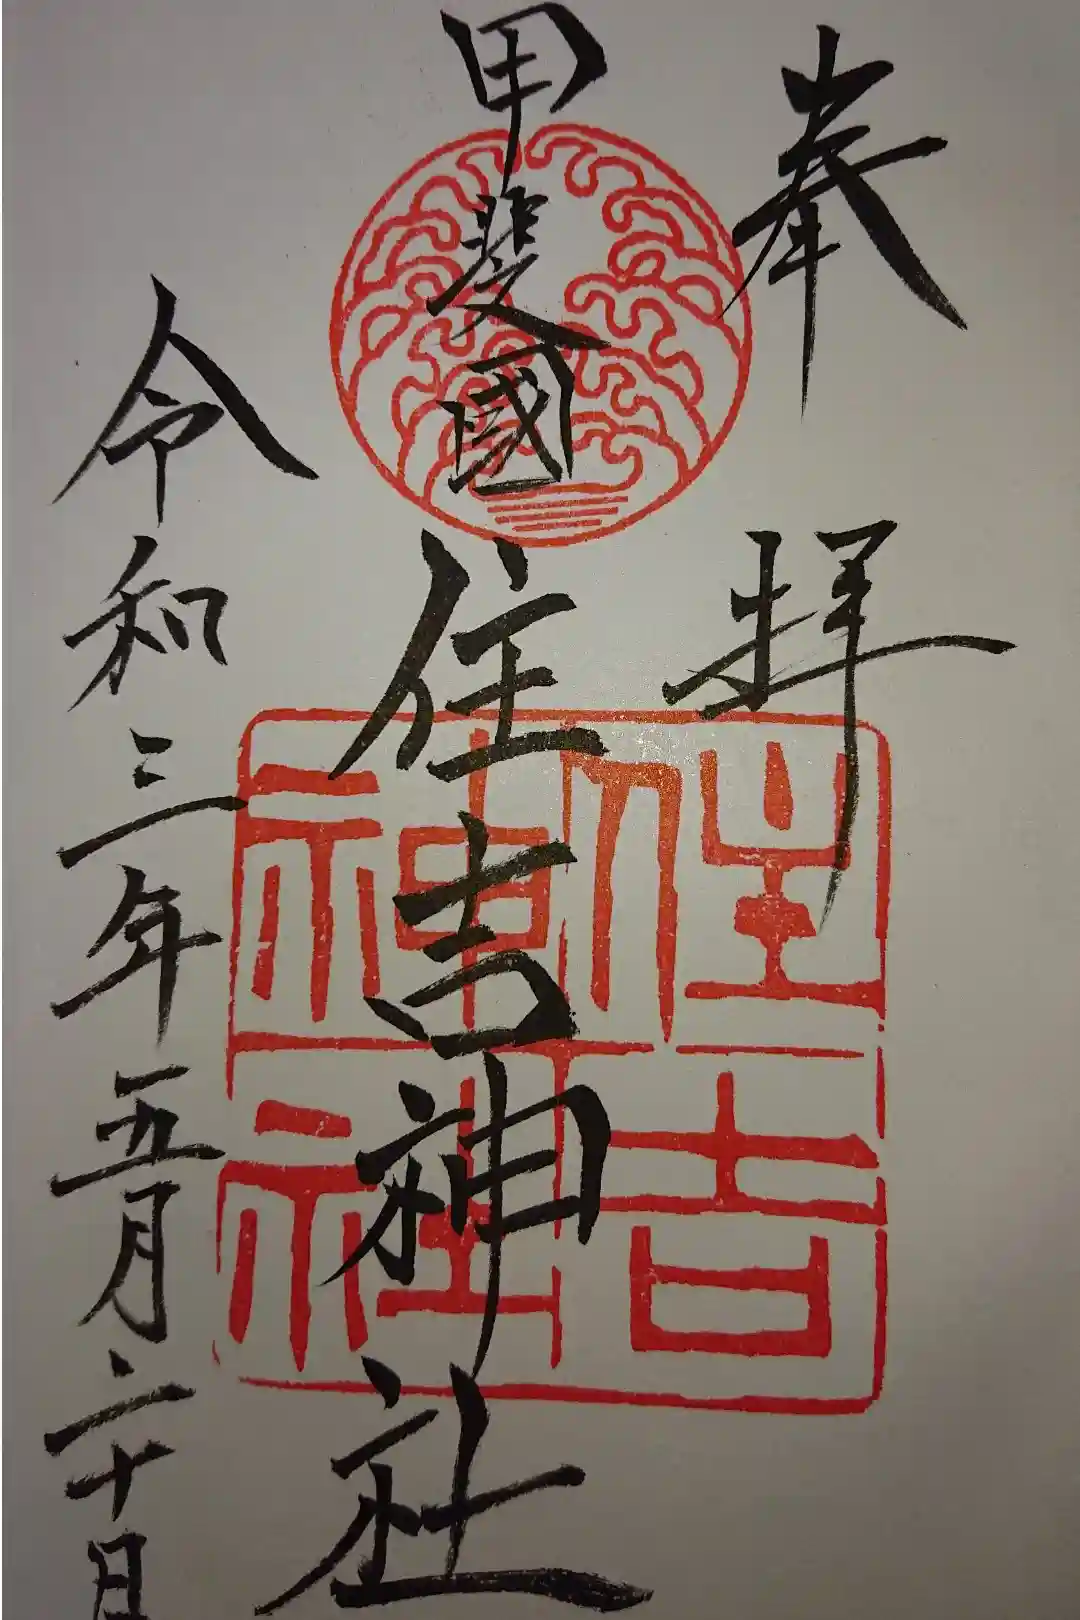 奉拝
甲斐國
住吉神社
住吉
神社
令和三年五月二十日